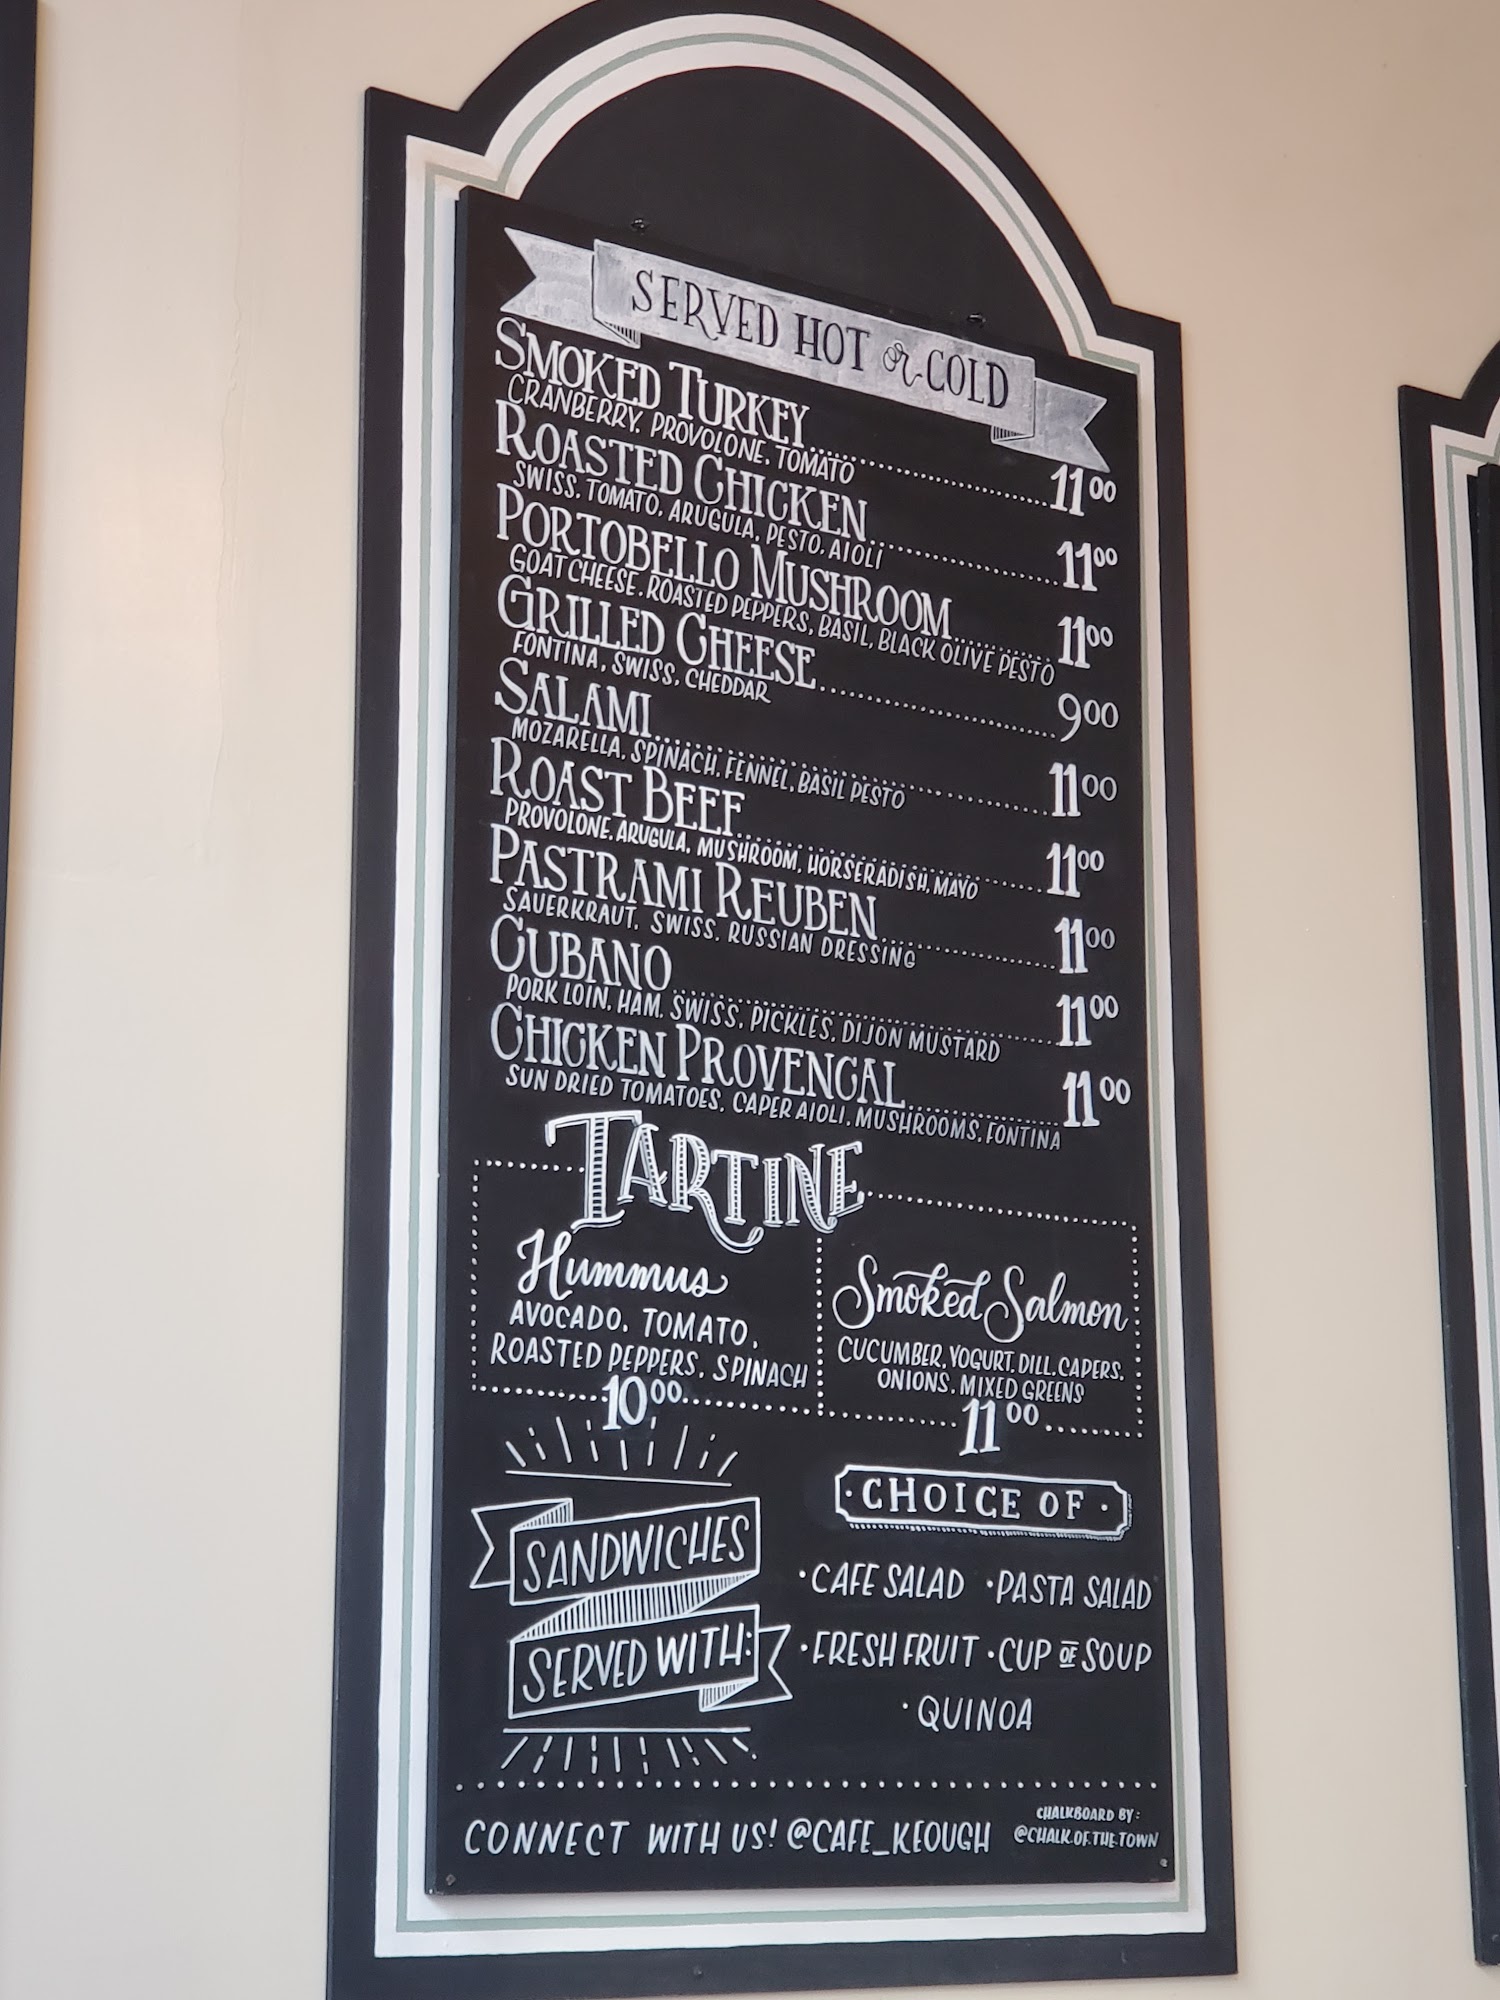 SERVED HOT or COLD
SMOKED TURKEY 11 00
CRANBERRY, PROVOLONE, TOMATO
ROASTED CHICKEN 11 00
SWISS, TOMATO, ARUGULA, PESTO, AIOLI
PORTOBELLO MUSHROOM 11 00
GOAT CHEESE, ROASTED PEPPERS, BASIL, BLACK OLIVE PESTO
GRILLED CHEESE 9 00
FONTINA, SWISS, CHEDDAR
SALAMI 11 00
MOZARELLA, SPINACH, FENNEL, BASIL PESTO
ROAST BEEF 11 00
PROVOLONE, ARUGULA, MUSHROOM, HORSERADISH, MAYO
PASTRAMI REUBEN 11 00
SAUERKRAUT, SWISS, RUSSIAN DRESSING
CUBANO 11 00
PORK LOIN, HAM, SWISS, PICKLES, DIJON MUSTARD
CHICKEN PROVENCAL 11 00
SUN DRIED TOMATOES, CAPER AIOLI, MUSHROOMS, FONTINA
TARTINE
Hummus
AVOCADO, TOMATO,
ROASTED PEPPERS, SPINACH
10 00
Smoked Salmon
CUCUMBER, YOGURT, DILL, CAPERS,
ONIONS, MIXED GREENS
11 00
SANDWICHES
SERVED WITH:
· CHOICE OF ·
· CAFE SALAD · PASTA SALAD
· FRESH FRUIT · CUP OF SOUP
· QUINOA
CONNECT WITH US! @CAFE_KEOUGH
CHALKBOARD BY:
@CHALK.OF.THE.TOWN